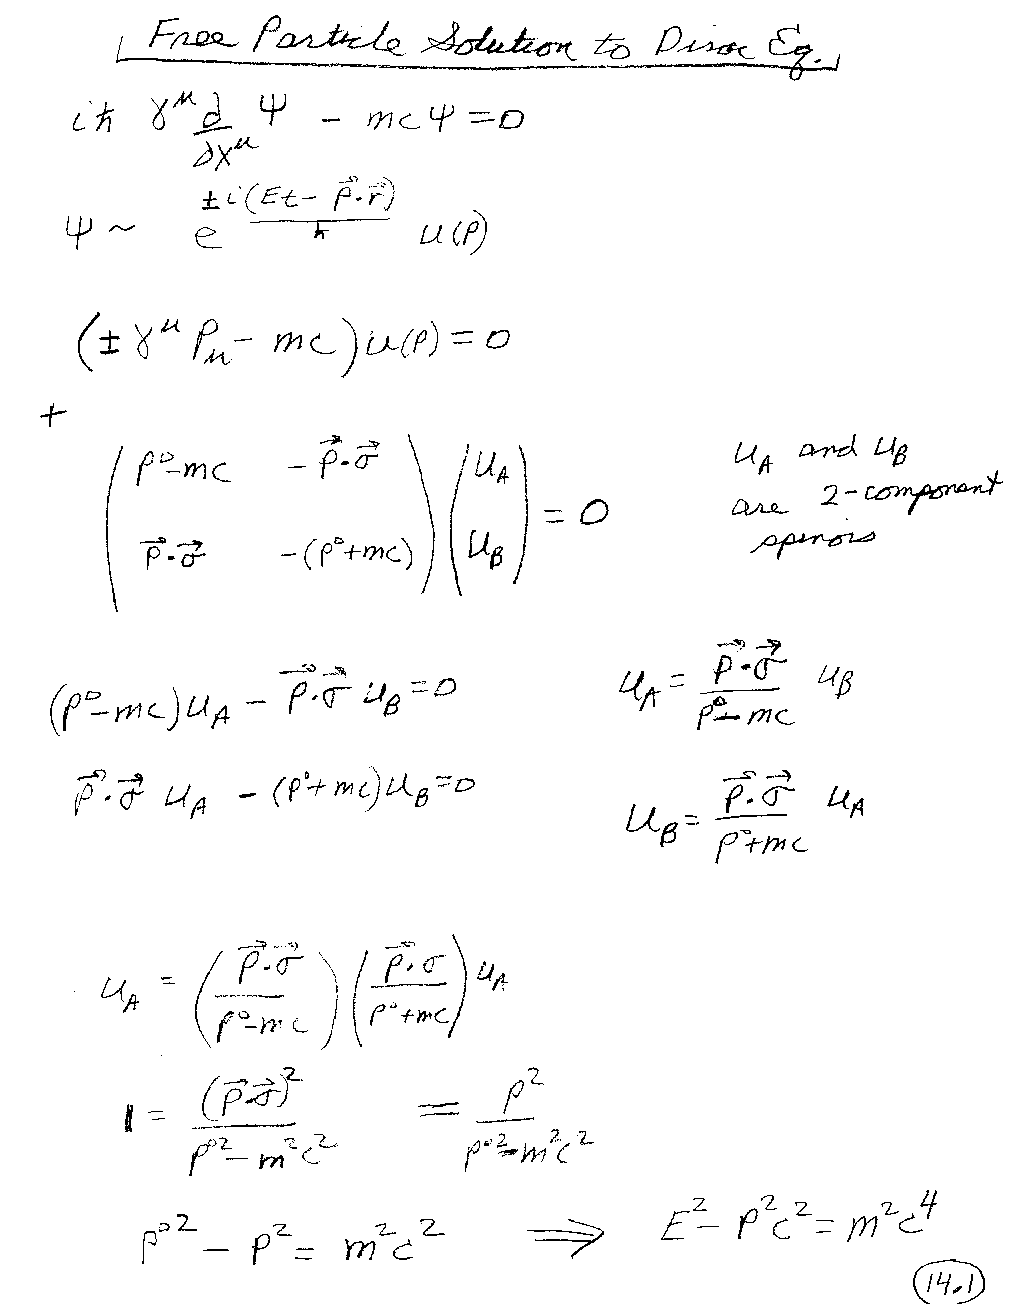 Free Particle Solution to Dirac Eq.
iħ γ^μ ∂/∂x^μ Ψ - mcΨ = 0
Ψ ~ e^{±i(Et - p⃗·r⃗)/ħ} u(p)
(± γ^μ P_μ - mc) u(p) = 0
+
( p⁰-mc   - p⃗·σ⃗ ) ( u_A ) = 0
( p⃗·σ⃗   -(p⁰+mc) ) ( u_B )
u_A and u_B
are 2-component
spinors
(p⁰-mc)u_A - p⃗·σ⃗ u_B = 0   u_A = p⃗·σ⃗/(p⁰-mc) u_B
p⃗·σ⃗ u_A - (p⁰+mc)u_B = 0   u_B = p⃗·σ⃗/(p⁰+mc) u_A
u_A = (p⃗·σ⃗/(p⁰-mc)) (p⃗·σ/(p⁰+mc)) u_A
1 = (p⃗·σ⃗)²/(p⁰²-m²c²) = p²/(p⁰²-m²c²)
p⁰² - p² = m²c² ⟹ E² - p²c² = m²c⁴
14.1